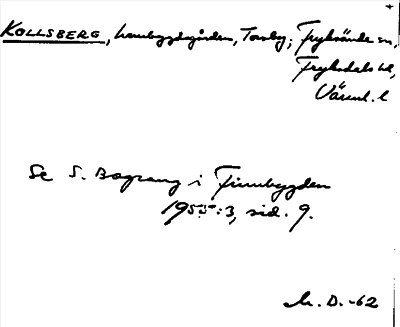 KOLLSBERG, hembygdsgården, Torsby; Fryksände sn,
Fryksdals hd,
Värml. l
Se S. Bograng i Finnbygden
1955:3, sid. 9.
M. D. -62